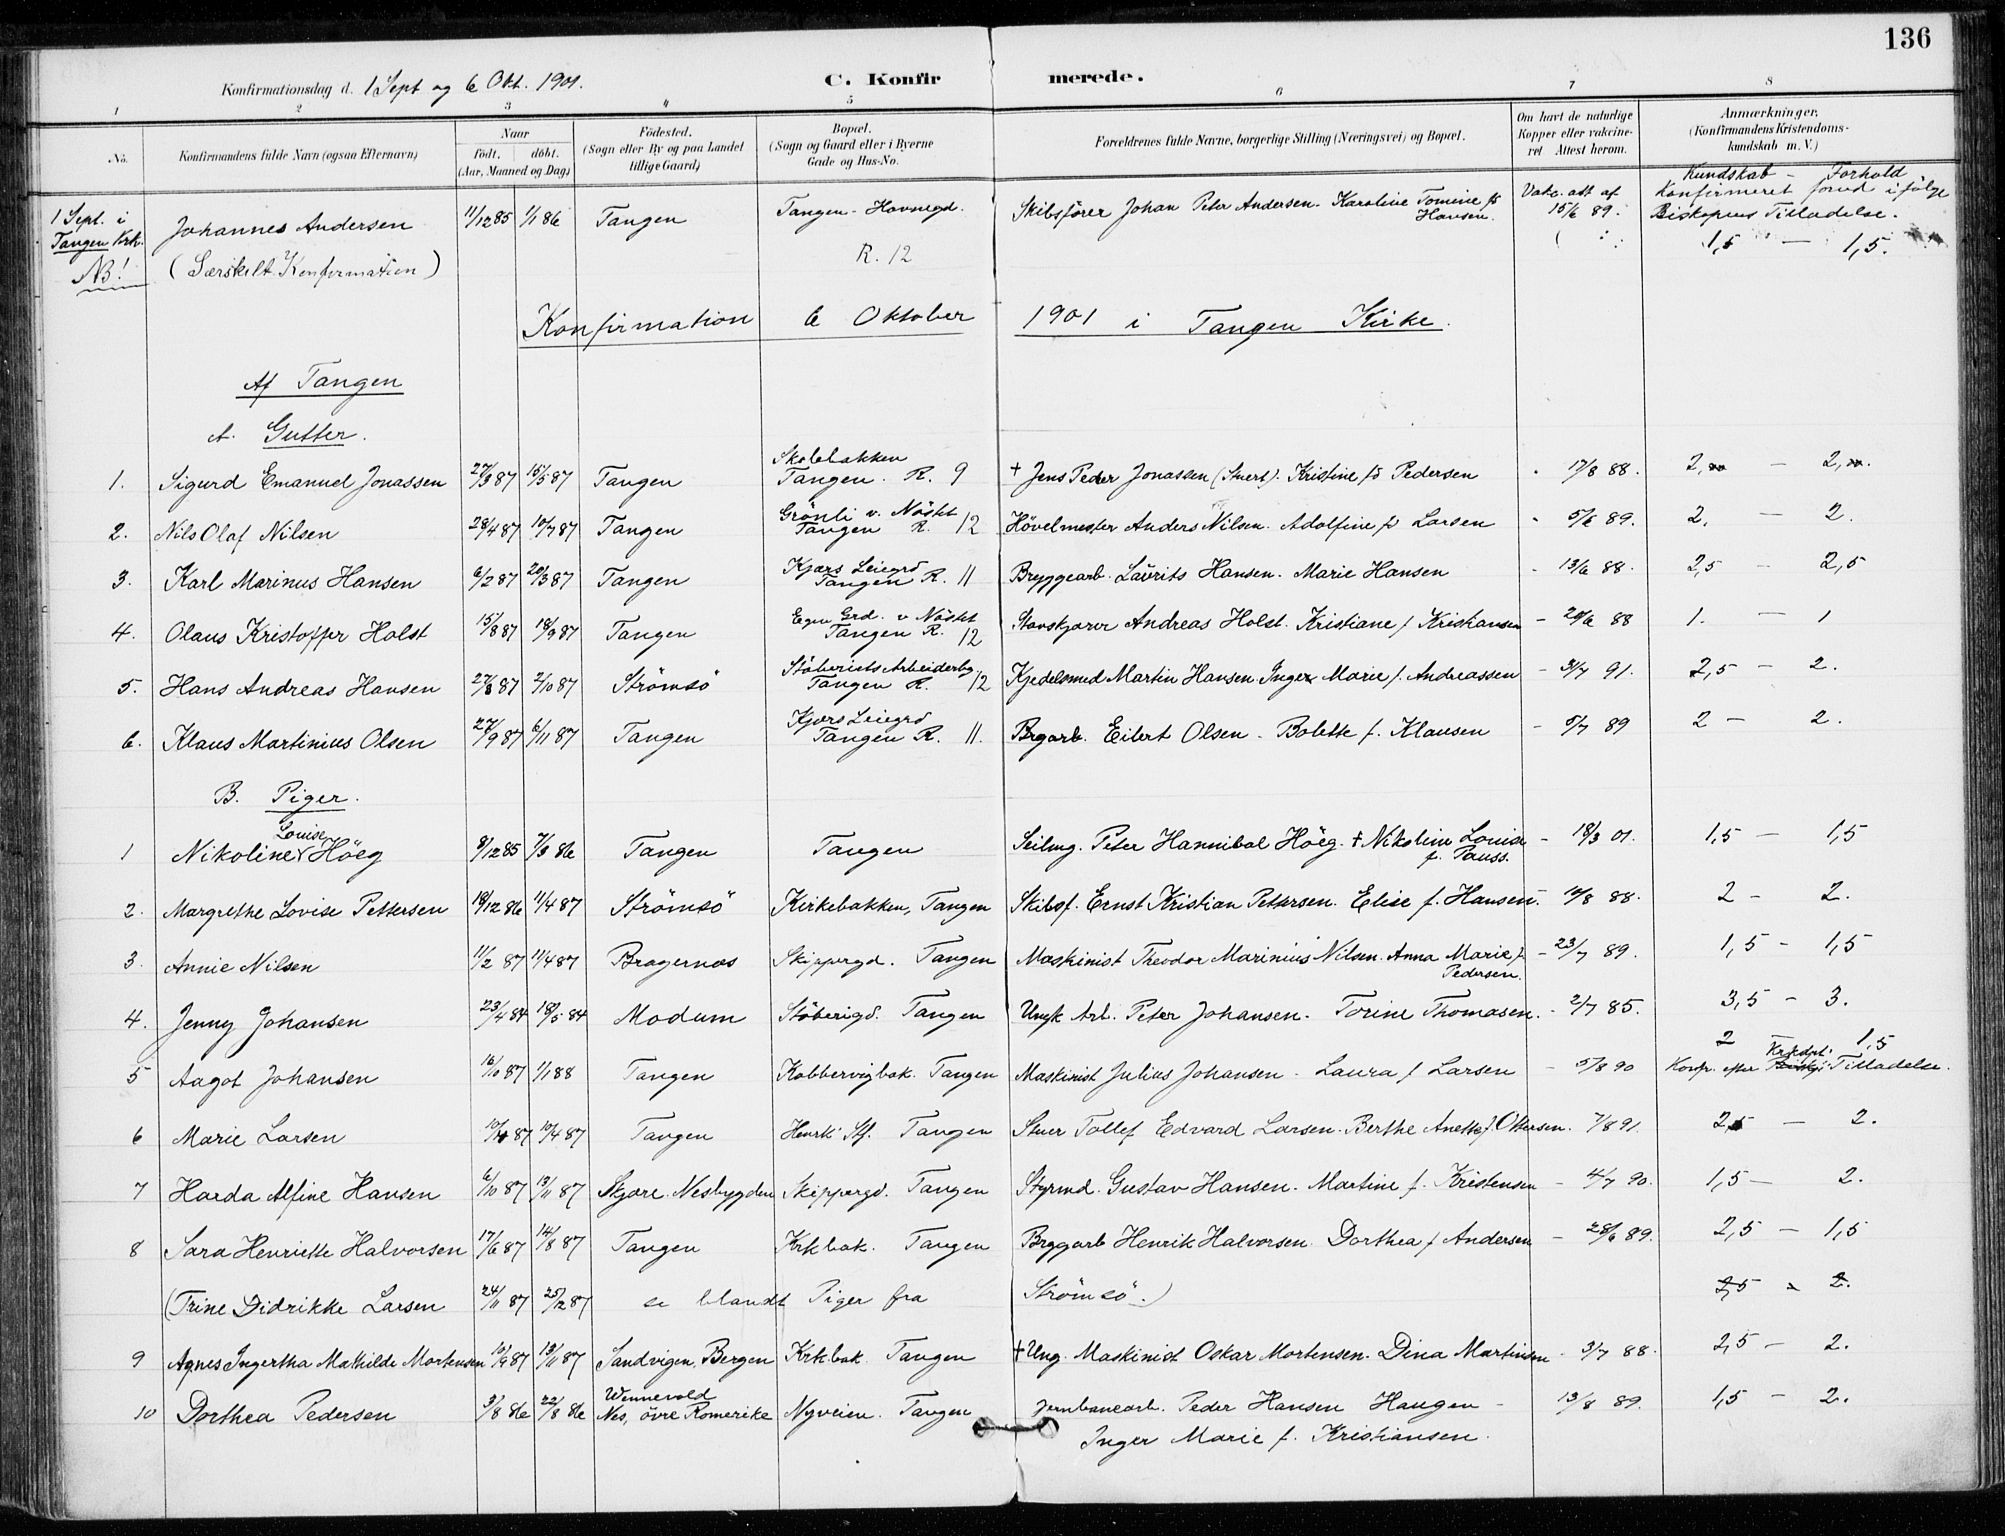 136
Konfirmationsdag d. 1 Sept og 6 Okt. 1901. C. Konfirmerede.
1 2 3 4 5 6 7 8
No. Konfirmandens fulde Navn (ogsaa Efternavn) Naar født. døbt. (Aar, Maaned og Dag) Fødested. (Sogn eller By og paa Landet tillige Gaard) Bopæl. (Sogn og Gaard eller i Byerne Gade og Hus-No. Forældrenes fulde Navne, borgerlige Stilling (Næringsvei) og Bopæl. Om havt de naturlige Kopper eller vakcineret Attest herom. Anmærkninger. (Konfirmandens Kristendomskundskab m. V.)
Kundskab - Forhold
1 Sept. i Tangen Krk. NB! Johannes Andersen (Særskilt Konfirmation) 11/12 85 1/1 86 Tangen Tangen - Havnegd. R. 12 Skibsfører Johan Peter Andersen - Karoline Tomine f. Hansen. Vakc. att af 15/6 89. Konfirmeret forud ifølge Biskopens Tilladelse. 1,5 — 1,5.
Konfirmation 6 Oktober 1901 i Tangen Kirke.
Af Tangen
A. Gutter.
1. Sigurd Emanuel Jonassen 27/3 87 15/5 87 Tangen Skolebakken Tangen. R. 9 † Jens Peder Jonassen (Stuert). Kristine f. Pedersen 17/8 88. 2, — 2,
2. Nils Olaf Nilsen 28/4 87 10/7 87 Tangen Grönli v. Nöstet Tangen R. 12 Hövelmester Anders Nilsen. Adolfine f. Larsen 5/6 89. 2. — 2.
3. Karl Marinus Hansen 6/2 87 20/3 87 Tangen Kjærs Leiegrd Tangen R. 11 Bryggearb. Laurits Hansen. Marie Hansen - 13/6 88. 2,5 — 2,5
4. Olaus Kristoffer Holst 15/8 87 18/9 87 Tangen Egen Grd. v Nöstet Tangen R. 12 Stavskjærer Andreas Holst. Kristiane f. Kristiansen - 29/6 88 1. — 1
5. Hans Andreas Hansen 27/8 87 2/10 87 Strömsö Stöberiets Arbeiderbg. Tangen R. 12 Kjedelsmed Martin Hansen. Inger Marie f. Andreassen - 31/7 91. 2,5 — 2.
6. Klaus Martinius Olsen 27/9 87 6/11 87 Tangen Kjærs Leiegrd Tangen R. 11. Brgarb. Eilert Olsen - Bolette f. Klausen - 5/7 89 2 — 2.
B. Piger.
1 Nikoline Louise Höeg 8/12 85 7/3 86 Tangen Tangen Seilmg. Peter Hannibal Höeg. † Nikoline Louise f. Pauss. - 18/3 01. 1,5 — 1,5
2. Margrethe Lovise Pettersen 18/12 86 11/4 87 Strömsö Kirkebakken, Tangen Skibsf. Ernst Kristian Pettersen. Elise f. Hansen. - 10/8 88. 2 — 2.
3. Annie Nilsen 11/2 87 11/4 87 Bragernæs Skippergd. Tangen Maskinist Theodor Marinius Nilsen. Anna Marie f. Pedersen. - 23/7 89. 1,5 - 1,5
4. Jenny Johansen 23/4 84 18/5 84 Modum Stöberigd. Tangen Arb. Peter Johansen. Torine Thomasen. - 2/7 85. 3,5 - 3.
5 Aagot Johansen 16/10 87 1/1 88 Tangen Kobbervigbak. Tangen Maskinist Julius Johansen - Laura f Larsen - 5/8 90 2 1,5 Konf. efter Krkdpt. Tilladelse.
6 Marie Larsen 87 10/4 87 Tangen Tangen Stuer Tollef Edvard Larsen. Berthe Anette f. Ottersen. 7/8 91. 2 — 2.
7 Harda Alfine Hansen 6/10 87 13/11 87 Skjære. Nesbygden Skippergd. Tangen Styrmd. Gustav Hansen. Martine f. Kristensen - 4/7 90. 1,5 — 2.
8 Sara Henriette Halvorsen 17/6 87 14/8 87 Tangen Krkbak. Tangen Bryggarb Henrik Halvorsen. Dorthea f Andersen - 28/6 89. 2,5 — 1,5
(Trine Didrikke Larsen 24/11 87 25/12 87 se blandt Piger fra Strömsö.) 2,5 - 2.
9 Agnes Ingertha Mathilde Mortensen 10/9 87 13/11 87 Sandvigen, Bergen Krkbak. Tangen † Ung. Maskinist Oskar Mortensen. Dina Martinsen - 3/7 88. 2,5 — 2.
10 Dorthea Pedersen 3/8 86 22/8 86 Wennevold Nes, övre Romerike Nyveien. Tangen Jernbanearb. Peder Hansen Haugen - Inger Marie f. Kristiansen. 13/8 89. 1,5 — 2.